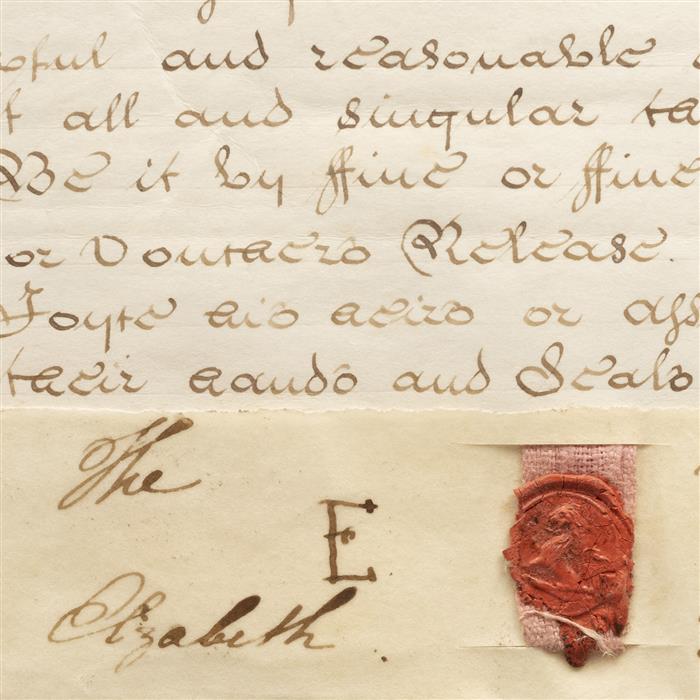 and reasonable
all and singular
Be it by ffine or ffine
or Vouchers Release.
Foyte his heirs or ass
their hands and Seals
The
E
Elizabeth .